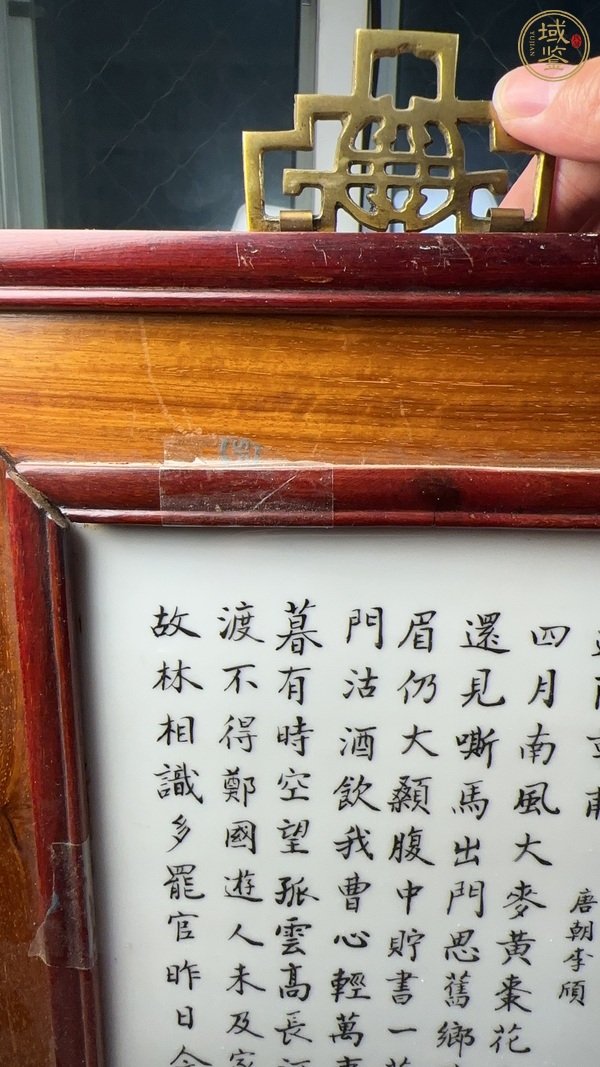 唐朝李頎
四月南風大麥黃棗花
還見嘶馬出門思舊鄉
眉仍大顙腹中貯書一
門沽酒飲我曹心輕萬
暮有時空望孤雲高長
渡不得鄭國遊人未及家
故林相識多罷官昨日今
域鑒
YUJIAN